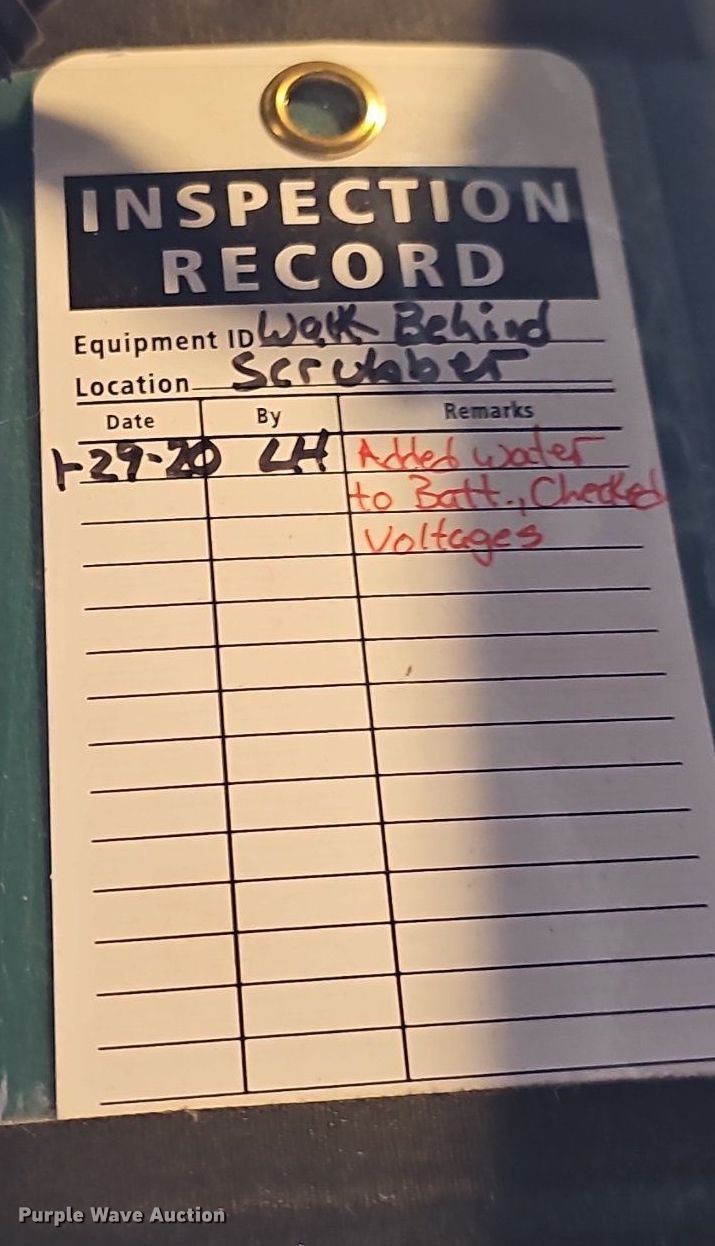 INSPECTION
RECORD
Equipment ID Walk Behind
Location Scrubber
Date By Remarks
1-29-20 LH Added water
to Batt., Checked
Voltages
Purple Wave Auction